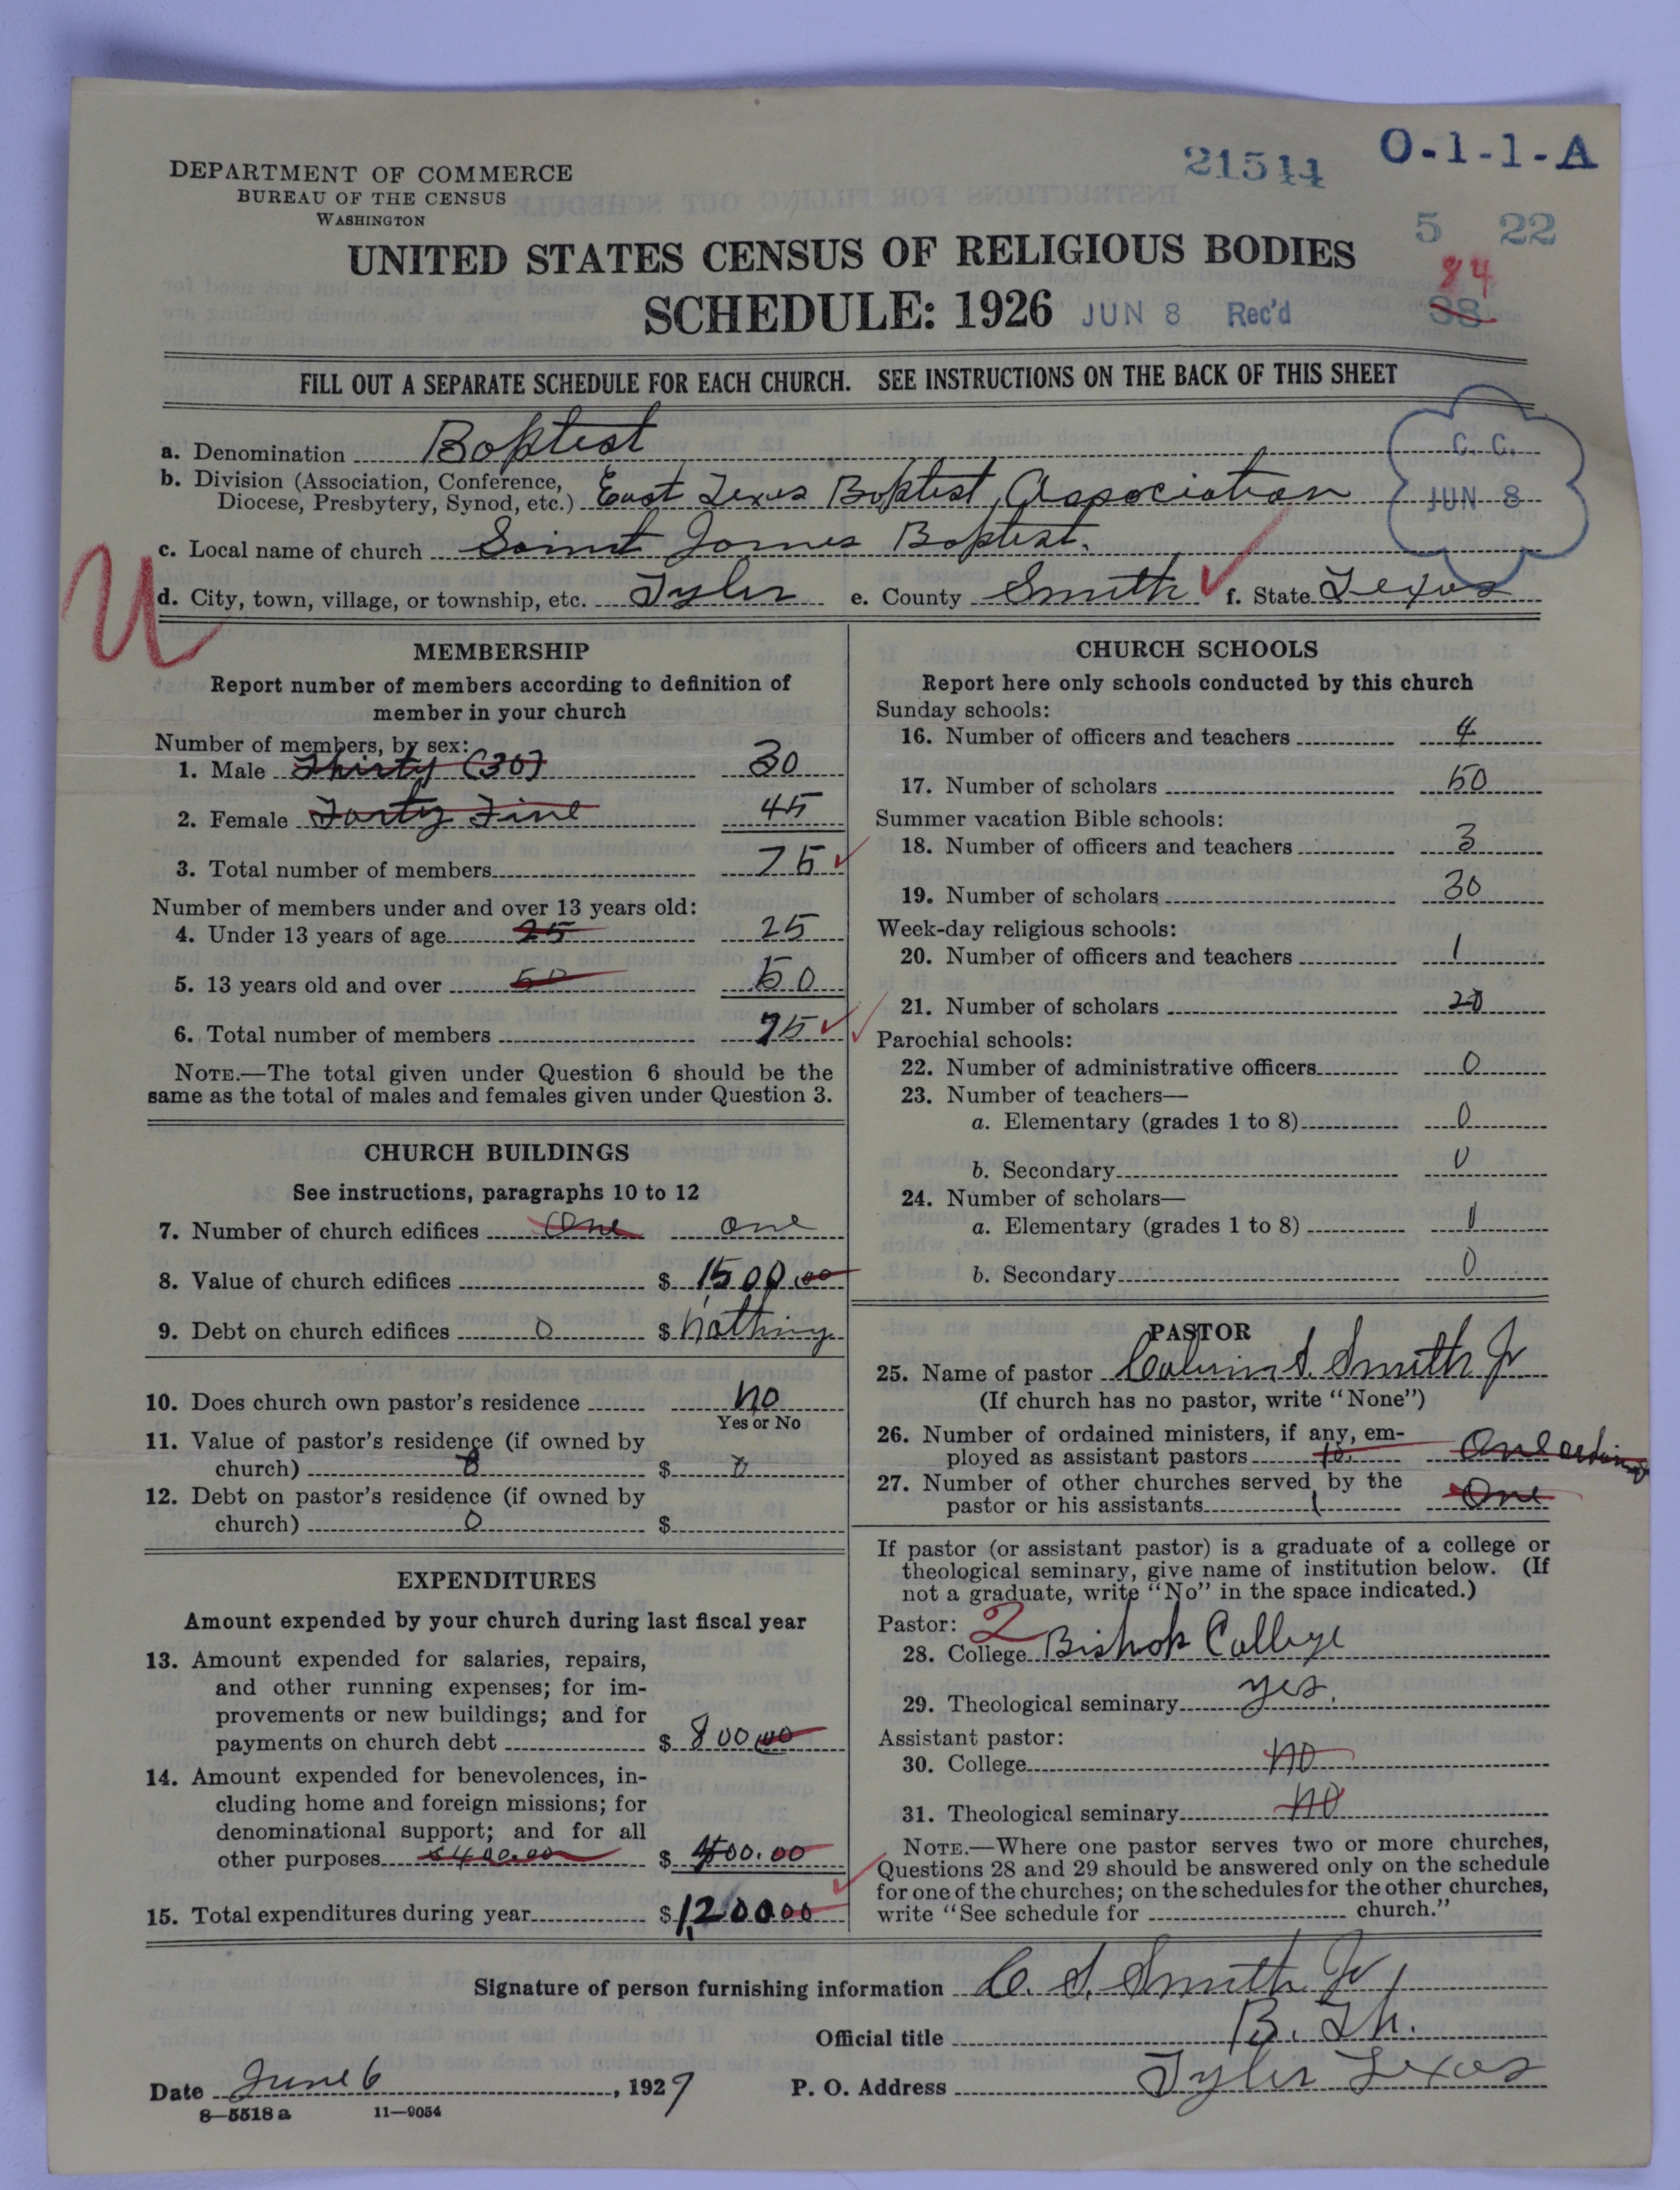 DEPARTMENT OF COMMERCE
BUREAU OF THE CENSUS
WASHINGTON
21514 O-1-1-A
5 22
84
38
UNITED STATES CENSUS OF RELIGIOUS BODIES
SCHEDULE: 1926 JUN 8 Rec'd
FILL OUT A SEPARATE SCHEDULE FOR EACH CHURCH. SEE INSTRUCTIONS ON THE BACK OF THIS SHEET
a. Denomination Baptist
C. C.
JUN 8
b. Division (Association, Conference,
Diocese, Presbytery, Synod, etc.) East Texas Baptist Association
c. Local name of church Saint James Baptist.
U
d. City, town, village, or township, etc. Tyler e. County Smith f. State Texas
MEMBERSHIP
Report number of members according to definition of
member in your church
Number of members, by sex:
1. Male Thirty (30) 30
2. Female Forty Five 45
3. Total number of members 75
Number of members under and over 13 years old:
4. Under 13 years of age 25 25
5. 13 years old and over 50 50
6. Total number of members 75
NOTE.—The total given under Question 6 should be the
same as the total of males and females given under Question 3.
CHURCH BUILDINGS
See instructions, paragraphs 10 to 12
7. Number of church edifices One one
8. Value of church edifices $ 1500.00
9. Debt on church edifices 0 $ nothing
10. Does church own pastor's residence no
Yes or No
11. Value of pastor's residence (if owned by
church) 0 $ 0
12. Debt on pastor's residence (if owned by
church) 0 $
EXPENDITURES
Amount expended by your church during last fiscal year
13. Amount expended for salaries, repairs,
and other running expenses; for im-
provements or new buildings; and for
payments on church debt $ 800.00
14. Amount expended for benevolences, in-
cluding home and foreign missions; for
denominational support; and for all
other purposes $400.00 $ 400.00
15. Total expenditures during year $ 1,200.00
CHURCH SCHOOLS
Report here only schools conducted by this church
Sunday schools:
16. Number of officers and teachers 4
17. Number of scholars 50
Summer vacation Bible schools:
18. Number of officers and teachers 3
19. Number of scholars 30
Week-day religious schools:
20. Number of officers and teachers 1
21. Number of scholars 20
Parochial schools:
22. Number of administrative officers 0
23. Number of teachers—
a. Elementary (grades 1 to 8) 0
b. Secondary 0
24. Number of scholars—
a. Elementary (grades 1 to 8) 0
b. Secondary 0
PASTOR
25. Name of pastor Calvin S. Smith Jr
(If church has no pastor, write "None")
26. Number of ordained ministers, if any, em-
ployed as assistant pastors One
27. Number of other churches served by the
pastor or his assistants 1 One
If pastor (or assistant pastor) is a graduate of a college or
theological seminary, give name of institution below. (If
not a graduate, write "No" in the space indicated.)
Pastor: 2
28. College Bishop College
29. Theological seminary yes.
Assistant pastor:
30. College no
31. Theological seminary no
NOTE.—Where one pastor serves two or more churches,
Questions 28 and 29 should be answered only on the schedule
for one of the churches; on the schedules for the other churches,
write "See schedule for church."
Signature of person furnishing information C. S. Smith Jr
Official title B. Th.
Date June 6, 1927 P. O. Address Tyler Texas
8—5518a 11—9054